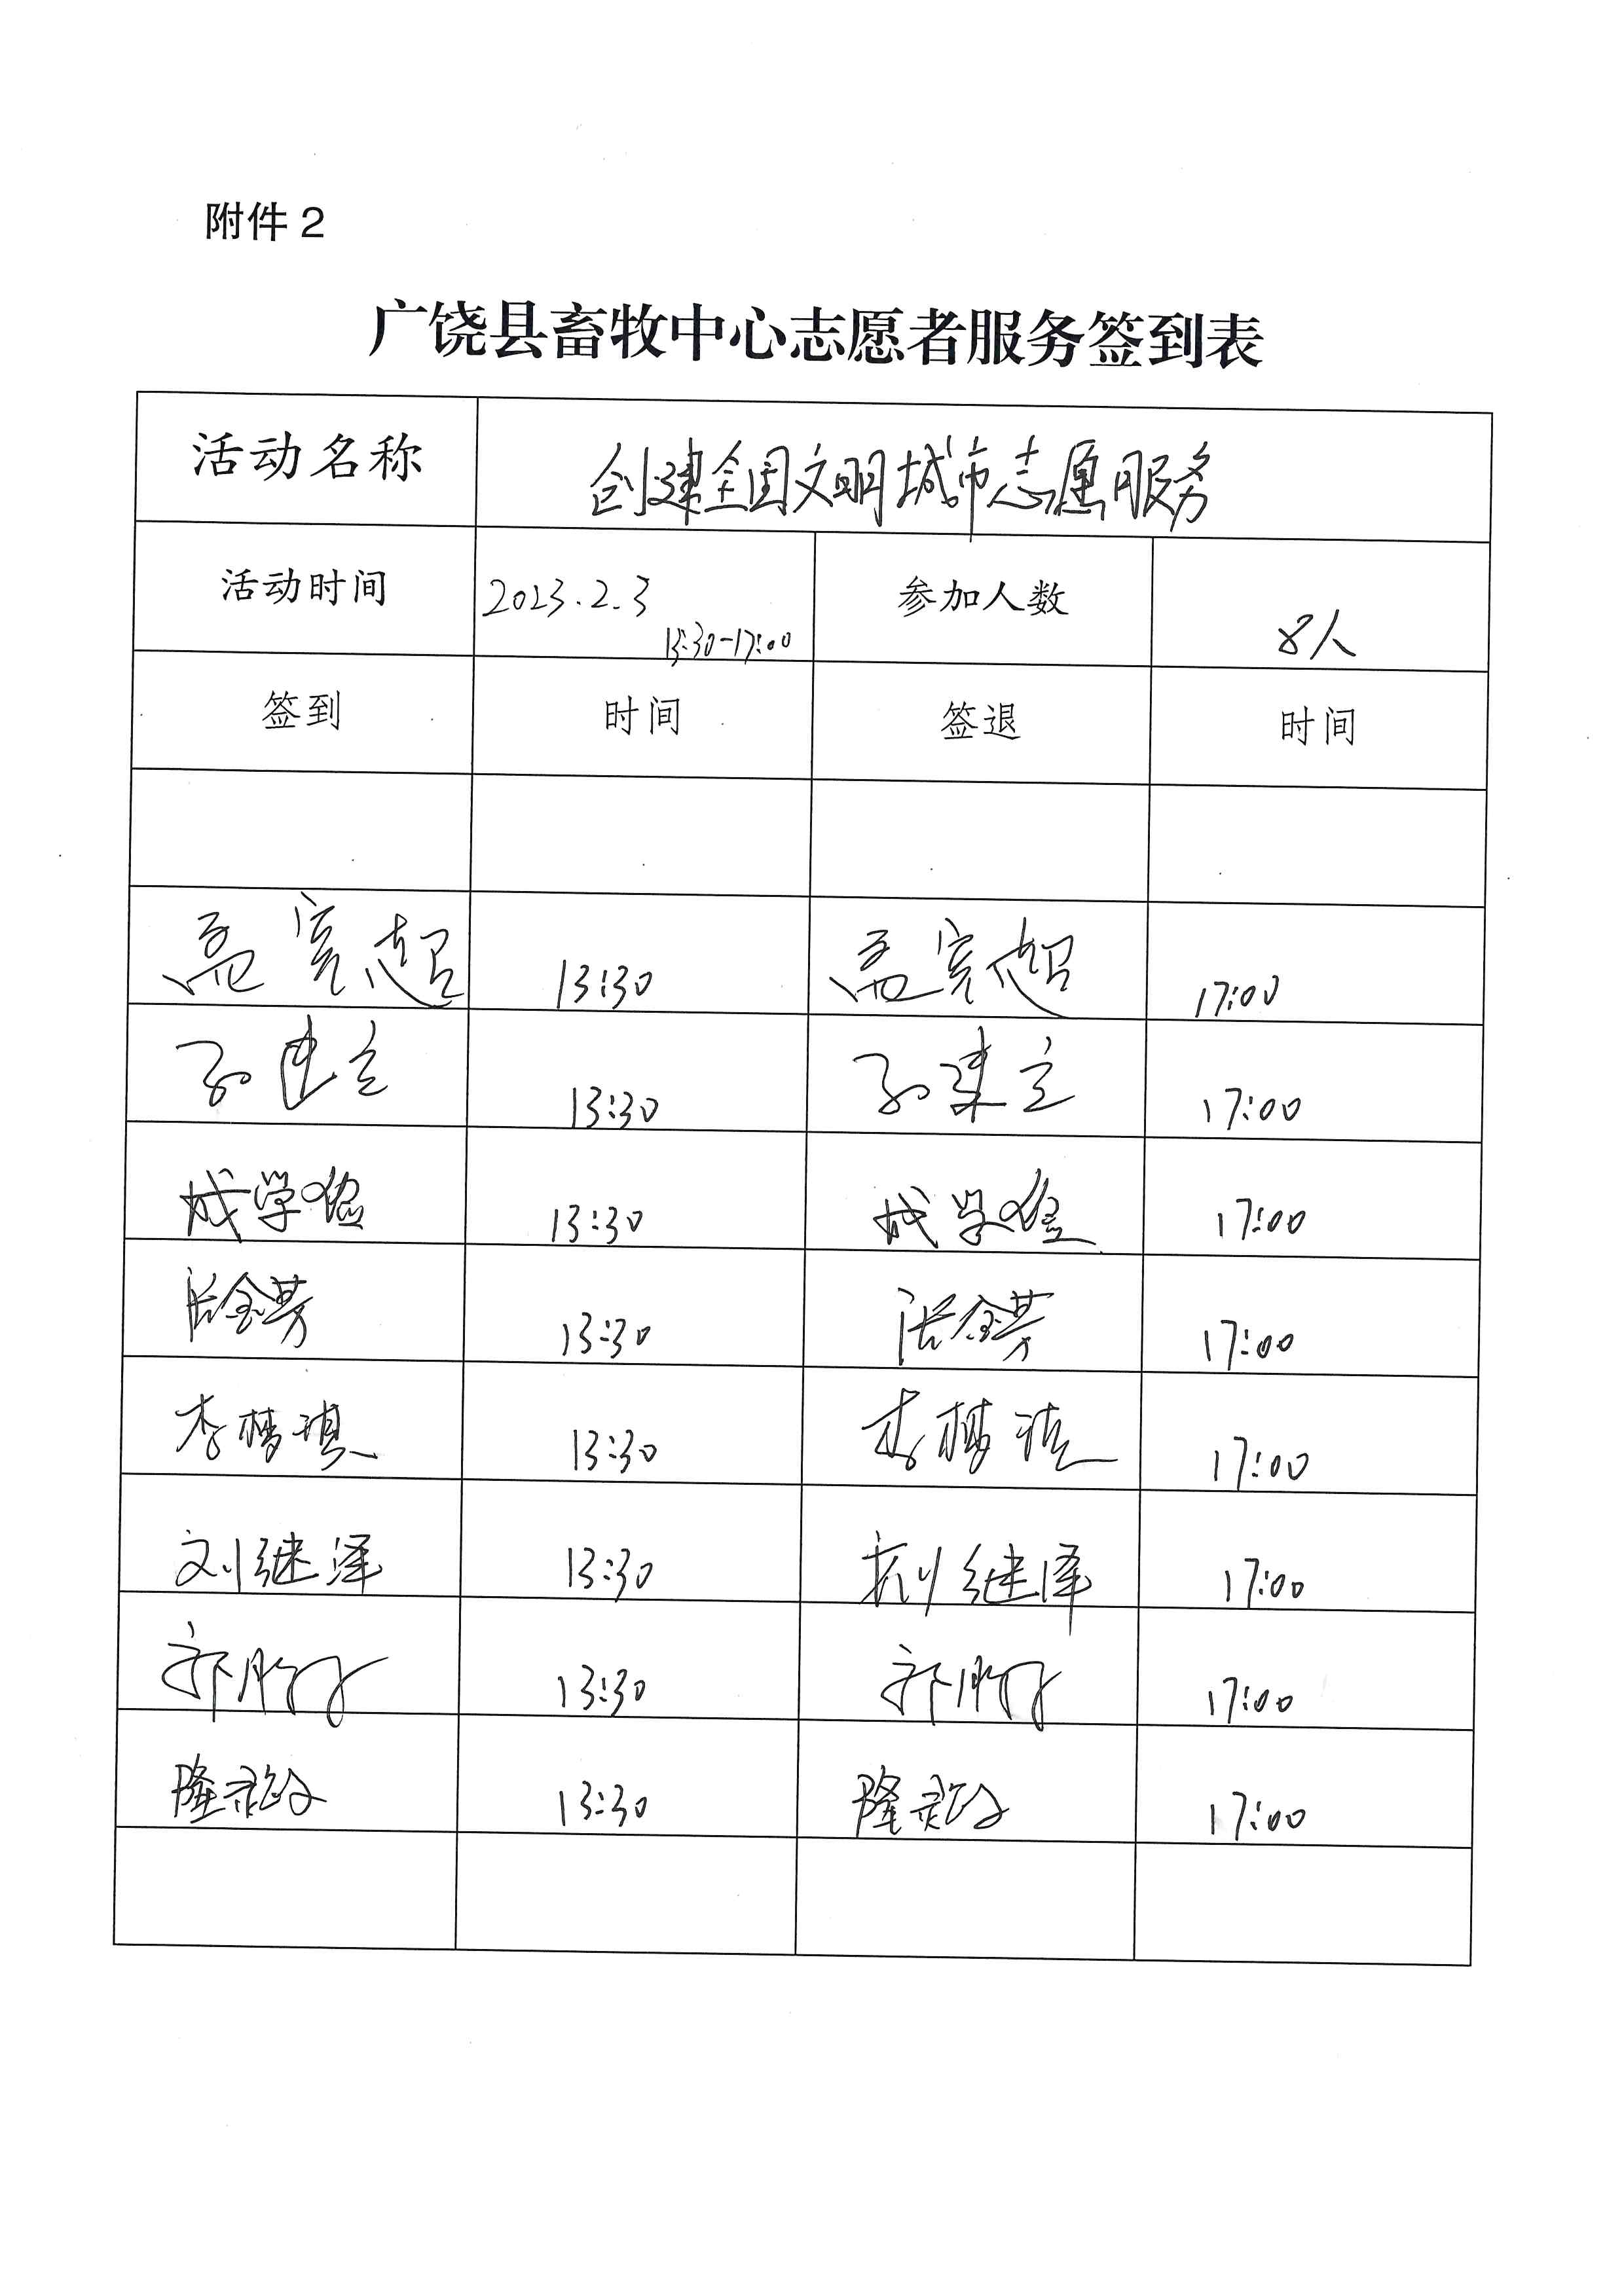 附件2
广饶县畜牧中心志愿者服务签到表
活动名称 创建全国文明城市志愿服务
活动时间 2023.2.3 13:30-17:00 参加人数 8人
签到 时间 签退 时间
孟宪超 13:30 孟宪超 17:00
孙建立 13:30 孙建立 17:00
成学 13:30 成学 17:00
张金芳 13:30 张金芳 17:00
李梦琪 13:30 李梦琪 17:00
刘继泽 13:30 刘继泽 17:00
13:30 17:00
隆 13:30 隆 17:00